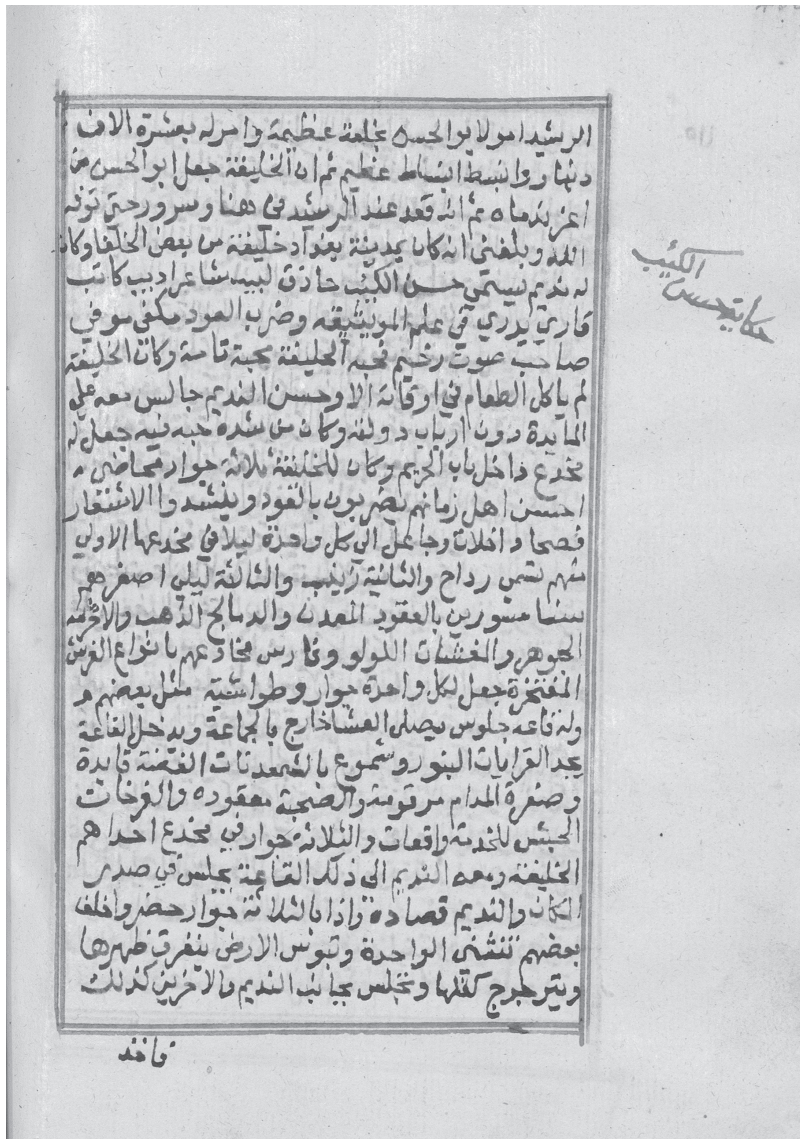 الرشيد امولا بو الحسن بخلعة عظيمة وامر له بعشرة الاف
دينار وانبسط انبساط عظيم ثم ان الخليفة جعل ابو الحسن من
اعز ندماه ثم انه قعد عند الرشيد في هنا وسرور حتي توفه
الله وبلغني انه كان بمدينة بغداد خليفة من بعض الخلفا وكان
له نديم يستمي حسن الكئيب حاذق لبيب شاعر اديب كاتب
قاري يدري في علم الموسيقه وضرب العود مكفي موفي
صاحب صوت رخيم فحبه الخليفة محبة تامة وكان الخليفة
لم ياكل الطعام في اوقاته الا وحسن النديم جالس معه علي
المايدة دون ارباب دولته وكان من شدة حبه فيه جعل له
مخدع داخل باب الحريم وكان للخليفة ثلاثة جوار محاضي
احسن اهل زمانهم يضربون بالعود وينشدوا الاشعار
فصحا داخلات وجاعل الي كل واحدة ليلا في مخدعها الاولي
منهم تسمي رداح والثانية زينب والثالثة ليلي اصغرهم
سنا مسورين بالعقود المعدن والدمالج الذهب والاخزمه
الجوهر والغشيات اللولو وفارس مخادعهم بانواع الفرش
المفتخرة جعل لكل واحدة جوار وطواشية مثل بعضهم
وله قاعه جلوس يصلي العشا خارج بالجماعة ويدخل القاعة
يجد القرايات البنور وشموع بالشمعدنات الفضة قايدة
وصفرة المدام مرقومة والصحبة معقوده والفرخات
الحبش للخدمة واقعات والثلاثة جوار في مخدع احداهم
الخليفة ومعه النديم الي ذلك القاعة يجلس في صدر
المكان والنديم قصاده واذا بالثلاثة جوار حضروا خلف
بعضهم تتثني الواحدة وتبوس الارض يتفرق ظهرها
ويترجرج كفلها وتجلس بجانب النديم والاخرين كذلك
فاخذ
حكاية حسن
الكئيب